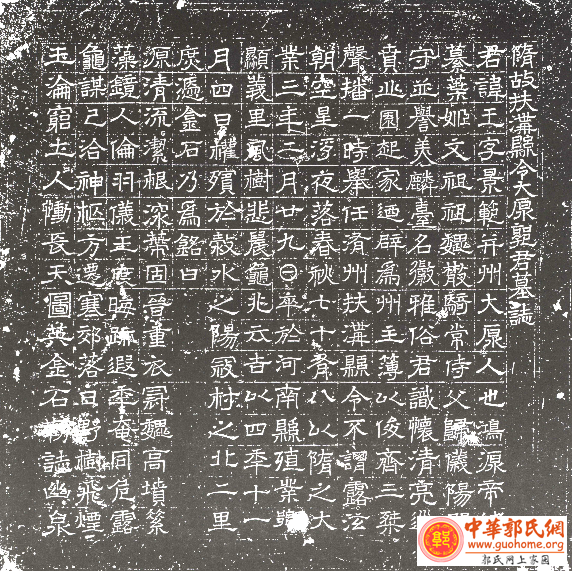 隋故扶溝縣令大原郭君墓誌
君諱王字景範并州大原人也鴻源帝
基葉姬文祖祖魏散騎常侍父歸儀陽郡
守並譽羙麟臺名徽雅俗君識懷清亮
賁丘園起家迺辟爲州主簿以俊齊三桀
聲播一時擧任濟州扶溝縣令不謂露泫
朝空星淪夜落春秋七十有八以隋之大
業三年三月廿九日卒於河南縣殖業鄉
顯義里風樹悲晨龜兆云吉以四年十一
月四日權殯於榖水之陽 村之北二里
庶憑金石乃爲銘曰
源清流潔根深葉固晉重衣冠魏高墳
藻鏡人倫羽儀王度晦跡遐年奄同危露
龜謀已洽神柩方遷寒郊落日野樹飛煙
玉淪窮土人慟長天圖英金石 誌幽泉
郭
中華郭氏網
www.guohome.org
郭氏网上家园